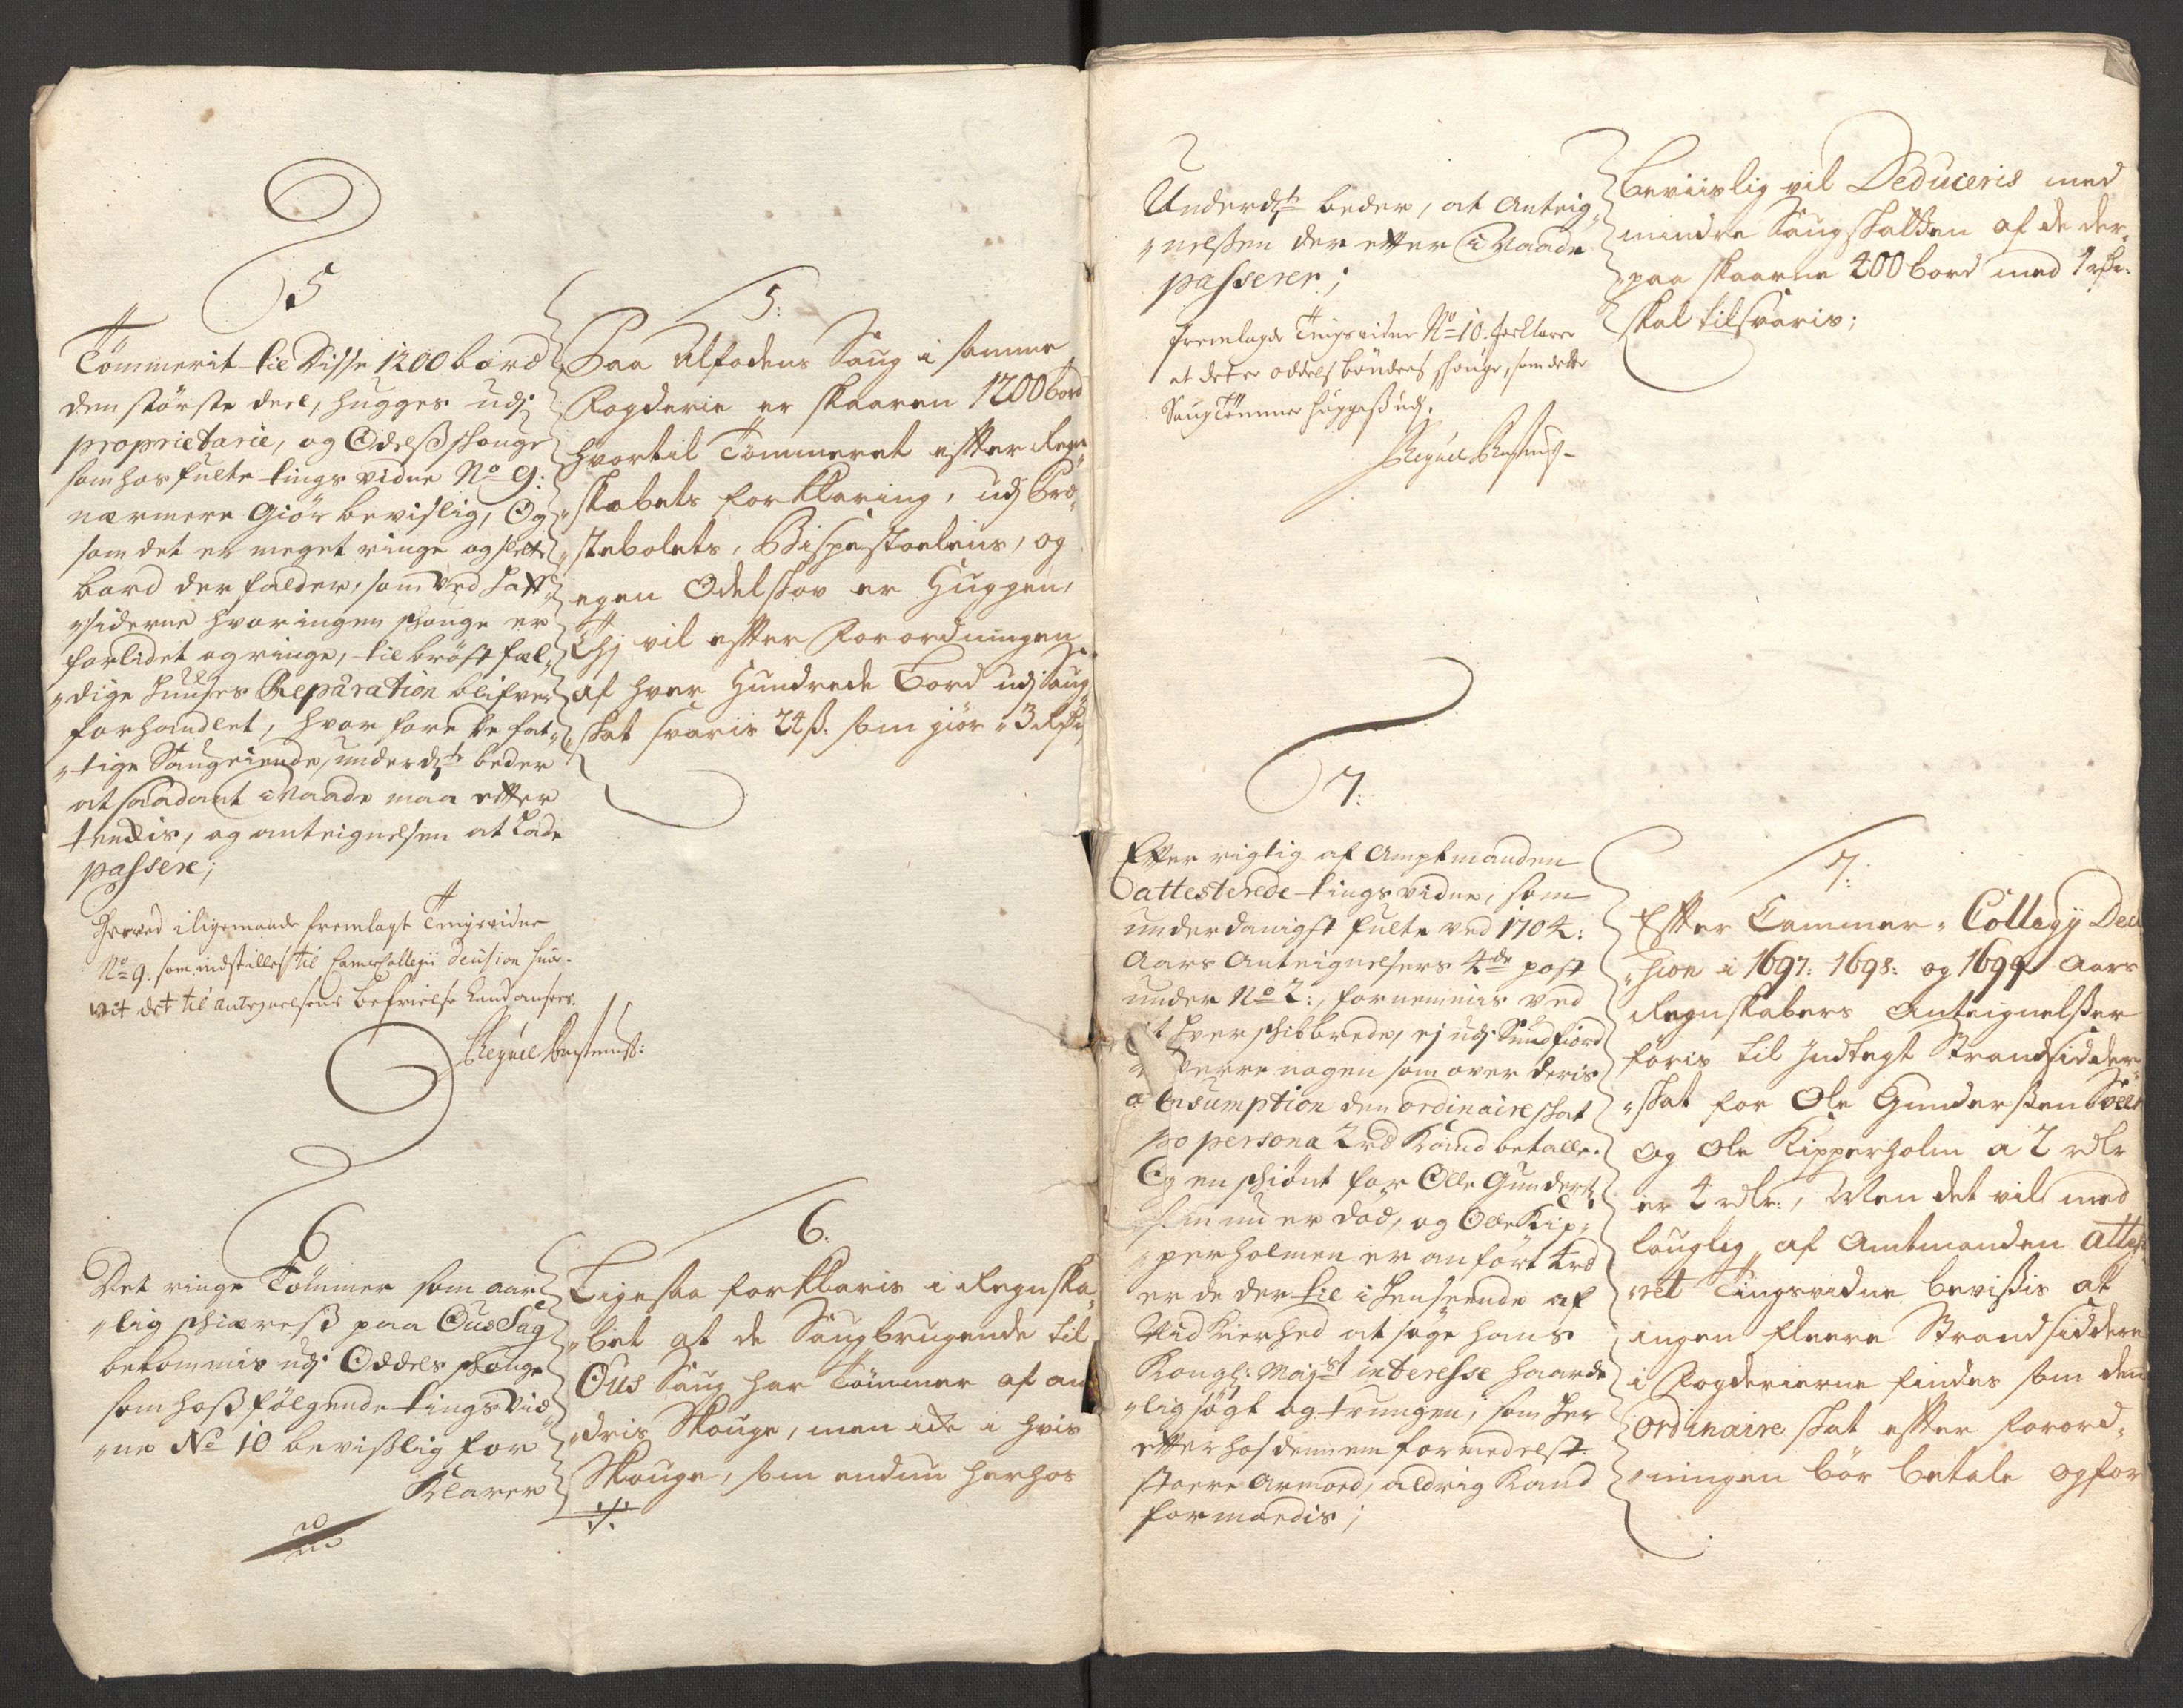 5
Tömmerit til disse 1200 bord
den störste deel, hugges udj
proprietarie, og Odelsschouge
som hos fulte tingsvidne No 9:
nærmere Giör bevislig, Og
som det er meget ringe og slette
bord der falder, som ved
„siderne hvor ingen schouge er
forlidet og ringe, til bröstfæl„
„dige huuses Reparation blifver
forhandlet, hvor fore de fat„
„tige Saugeiende, underdst beder
at saadant i Naade maa efter
tenckis, og anteignelsen at lade
passere;
Herved i ligemaade fremlagt Tingsvidne
No 9. som indstilles til Camercollegii decision
vit det til Antegnelsens befrielse kand ansees.
5:
Paa Alfodens Saug i samme
Fogderie er skaaren 1200 bord
hvortil Tömmeret efter Regn„
„skabets forklaring, udj Præ„
„stebolets, Bispestoelens, og
egen Odelskov er Huggen,
Thj vil efter Forordningen
af hver Hundrede Bord udj Saug„
„skat svaris 24 ß. som giör 3 Rdr
6
Det ringe Tömmer som aar„
„lig schæreß paa Ous Sag
bekommis udj Oddels schouge
som hoß fölgende tingsvid„
„ne No 10 bevislig for
Klarer
6:
Ligesaa forklaris i Regnska„
„bet at de Saugbrugende til
Ous Saug har Tömmer af an
„dris Skouge, men icke i hvis
Skouge, som endnu herhos
./.
Underdst beder, at Anteig„
„nelßen der efter i Naade
passerer;
fremlagde Tingsvidne No 10. forklarer
at det er oddels bönders schouge, som dette
Saugtömmer huggeß udj.
beviislig vil Deduceris med
mindre Saugskatten af de der„
„paa skaarne 400 bord med 1 rdr.
skal tilsvaris;
7:
Efter rigtig af Amptmanden
attesterede tingsvidne, som
underdanigst fulte ved 1704:
Aars Anteignelsers 4de post
under No 2:, fornemmis ved
hver schibbrede, ej udj Sundfiord
verre nogen som over deris
Consumption den ordinaire skat
pro persona 2 rd kand betalle.
Og en schiönt for Olle Gunders„
som nu er död, og Olle Kip„
„perholmen er anfört 4 rd
er de der til i henseende af
Vidkierhed at söge hans
Kongl: Majst interesse haarde
„lig sögt og trungen, som her
efter hos dennem formedelst
stoere armoed, aldrig kand
formaedis;
7:
Efter Cammer-Collegij Deci
„sion i 1697: 1698: og 1699 Aars
Regnskabers Anteignelßer
föris til Indtegt Strandsidder„
„skat for Ole Gunderßen
og Ole Kipperholm a 2 rdlr
er 4 rdlr:, Men det vil med
louglig af Amtmanden attest
„ret Tingsvidne bevißis at
ingen fleere Strandsiddere
i Fogderierne findes som den
ordinaire skat efter forord„
„ningen bör betale og for